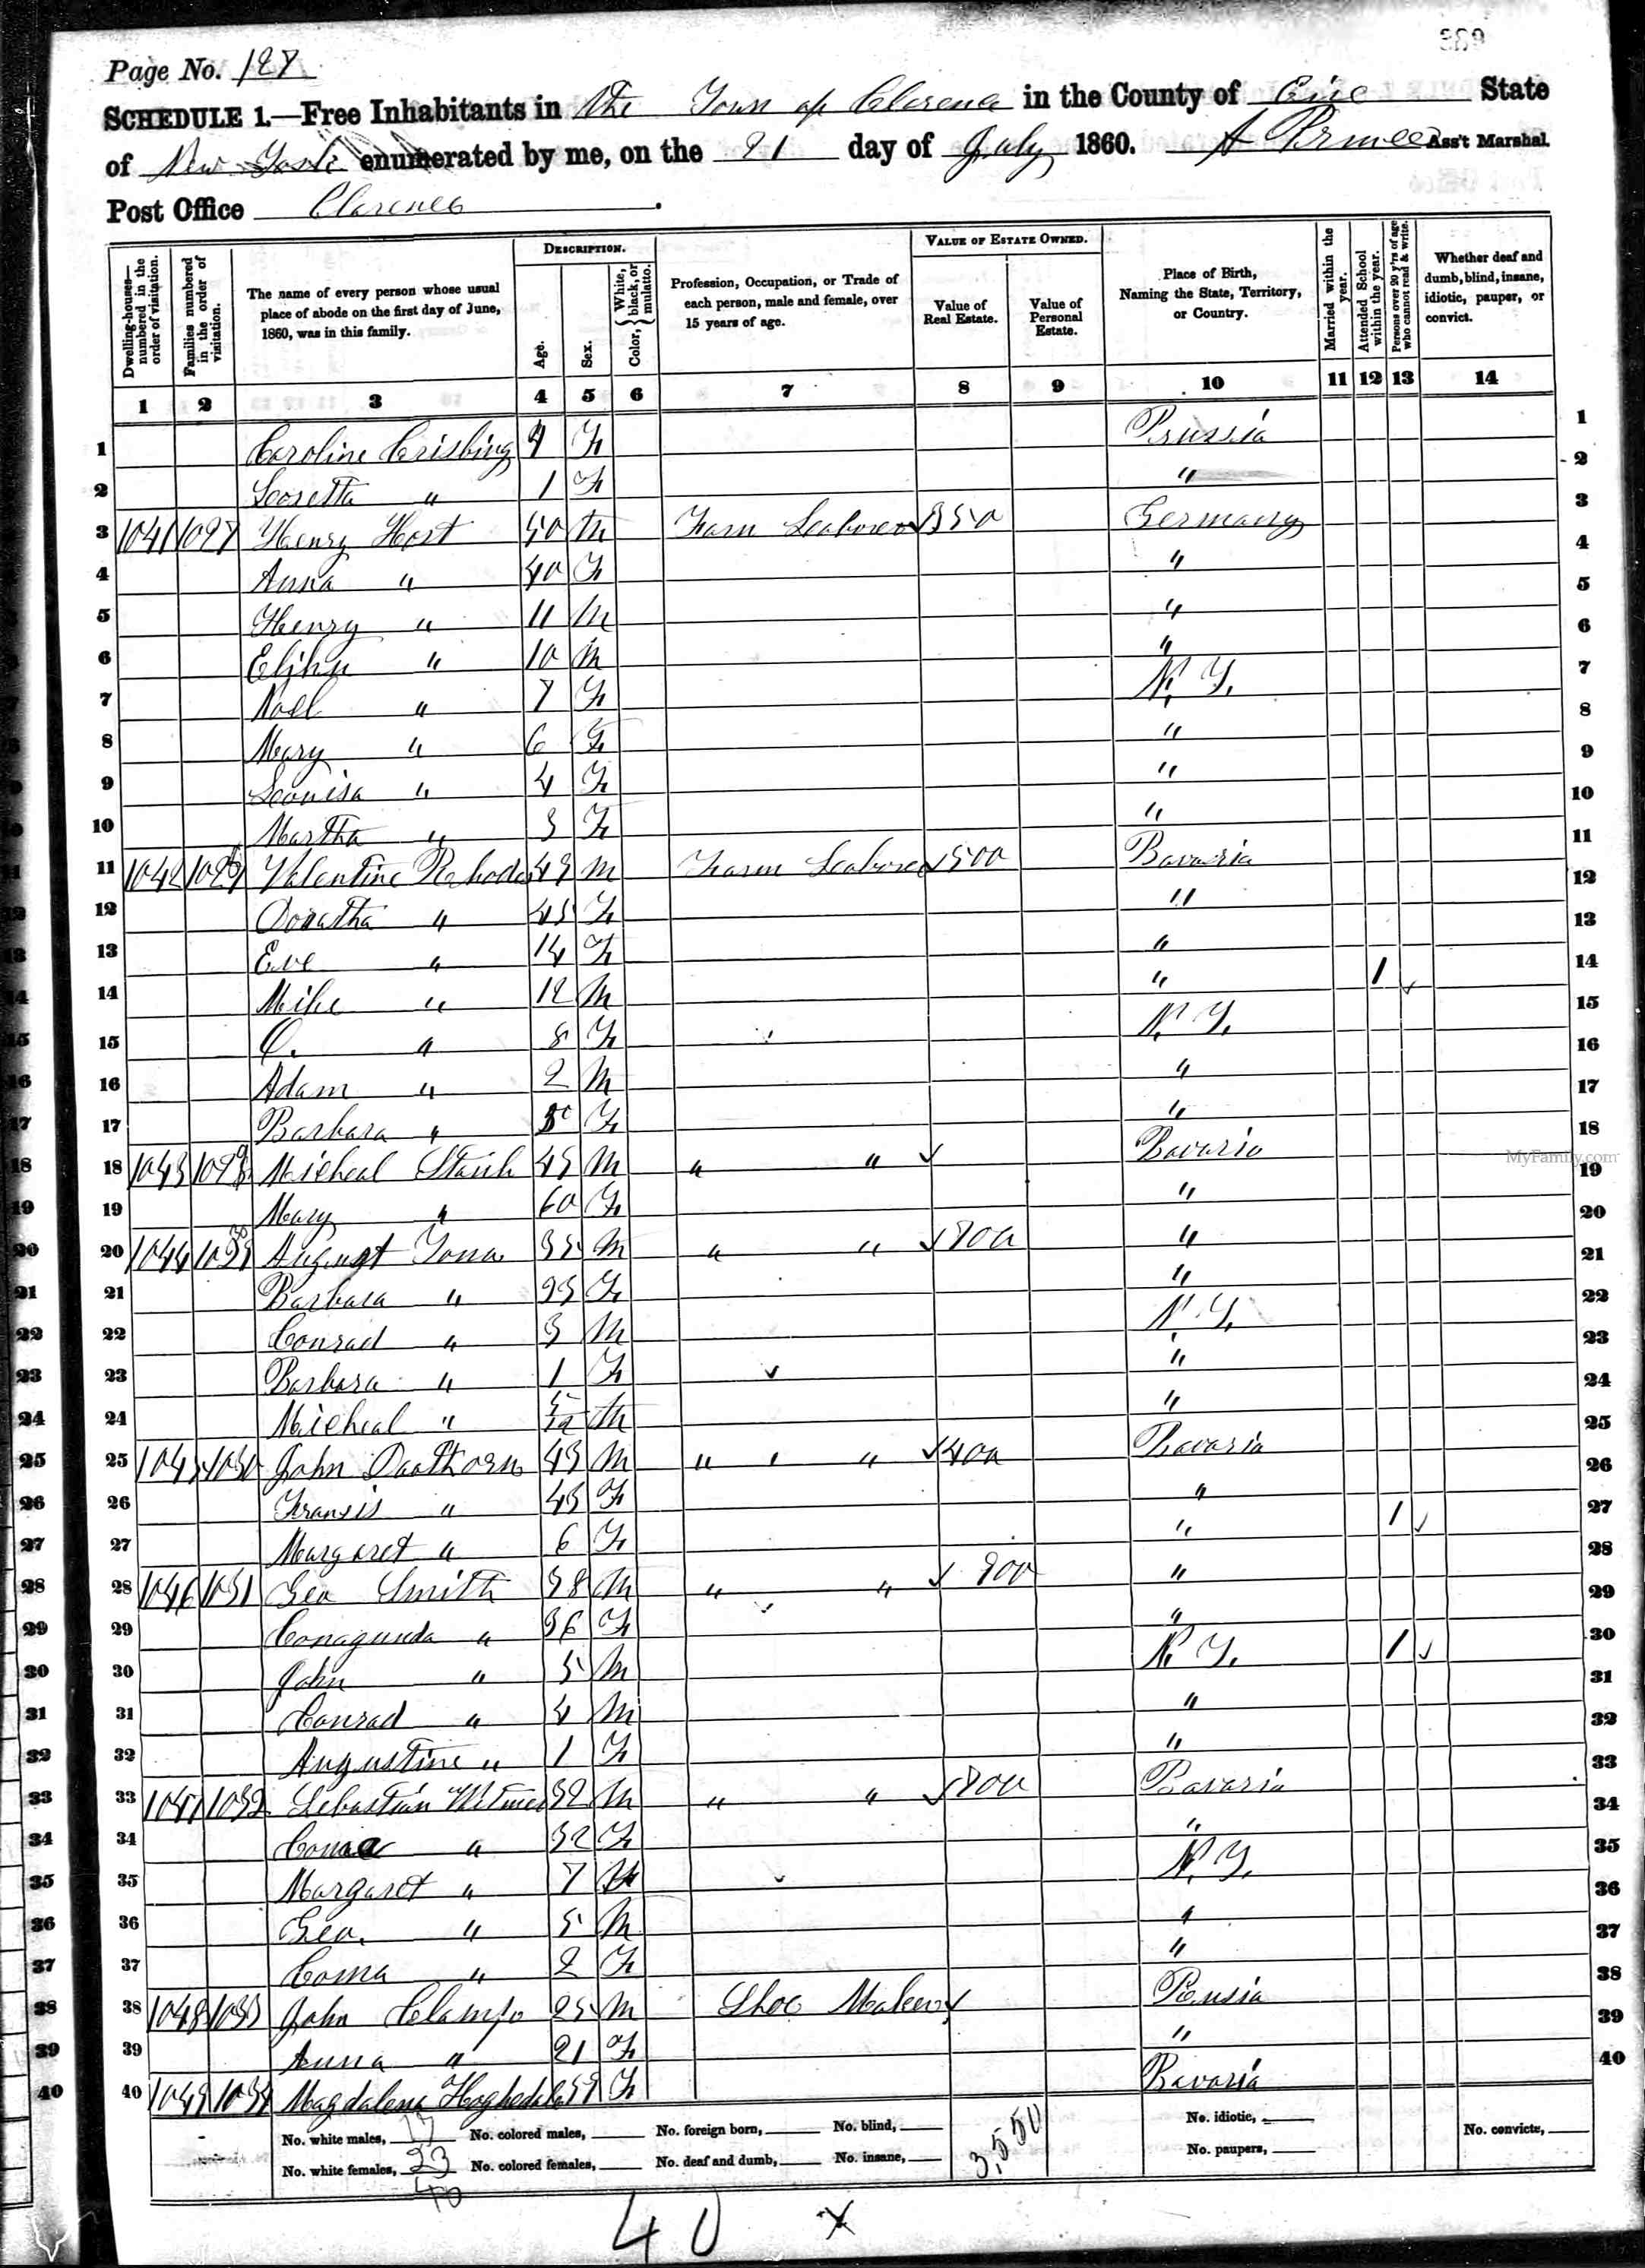 389
Page No. 127
SCHEDULE 1.—Free Inhabitants in The Town of Clarence in the County of Erie State
of New York enumerated by me, on the 21 day of July 1860. A Ass't Marshal.
Post Office Clarence.
Dwelling-houses—numbered in the order of visitation.
Families numbered in the order of visitation.
The name of every person whose usual place of abode on the first day of June, 1860, was in this family.
DESCRIPTION.
Age.
Sex.
Color, { White, black, or mulatto.
Profession, Occupation, or Trade of each person, male and female, over 15 years of age.
VALUE OF ESTATE OWNED.
Value of Real Estate.
Value of Personal Estate.
Place of Birth, Naming the State, Territory, or Country.
Married within the year.
Attended School within the year.
Persons over 20 y'rs of age who cannot read & write.
Whether deaf and dumb, blind, insane, idiotic, pauper, or convict.
1 2 3 4 5 6 7 8 9 10 11 12 13 14
1 Caroline 4 F Prussia 1
2 1 F " 2
3 1041 1027 Henry Host 50 M Farm Laborer 350 Germany 3
4 Anna " 40 F " 4
5 Henry " 11 M " 5
6 Elihu " 10 M " 6
7 " 7 F N.Y. 7
8 Mary " 6 F " 8
9 Louisa " 4 F " 9
10 Martha " 3 F " 10
11 1042 Valentine 43 M Farm Laborer 500 Bavaria 11
12 " 45 F " 12
13 Eve " 14 F " 13
14 Mike " 12 M " 1 14
15 " 8 F N.Y. 15
16 Adam " 2 M " 16
17 Barbara " F " 17
18 1043 Micheal 45 M " " Bavaria 18
19 Mary " 60 F " 19
20 1044 August 35 M " " 800 " 20
21 Barbara " 35 F " 21
22 Conrad " 3 M N.Y. 22
23 Barbara " 1 F " 23
24 Micheal " 5/12 M " 24
25 1045 1030 John 43 M " " 400 Bavaria 25
26 Fransis " 43 F " 26
27 Margaret " 6 F " 1 27
28 1046 1031 Geo Smith 38 M " " 900 " 28
29 Conagunda " 36 F " 29
30 John " 5 M N.Y. 1 30
31 Conrad " 4 M " 31
32 Augustine " 1 F " 32
33 1047 1032 Sebastian 32 M " " 800 Bavaria 33
34 " 32 F " 34
35 Margaret " 7 N.Y. 35
36 Geo. " 5 M " 36
37 " 2 F " 37
38 1048 1033 John Clampo 25 M Shoe Maker 38
39 Anna " 21 F " 39
40 1049 1034 Magdalena F Bavaria 40
No. white males, 17 No. colored males, No. foreign born, No. blind, No. idiotic, No. convicts,
No. white females, 23 No. colored females, No. deaf and dumb, No. insane, No. paupers,
40
3,550
40 x
MyFamily.com